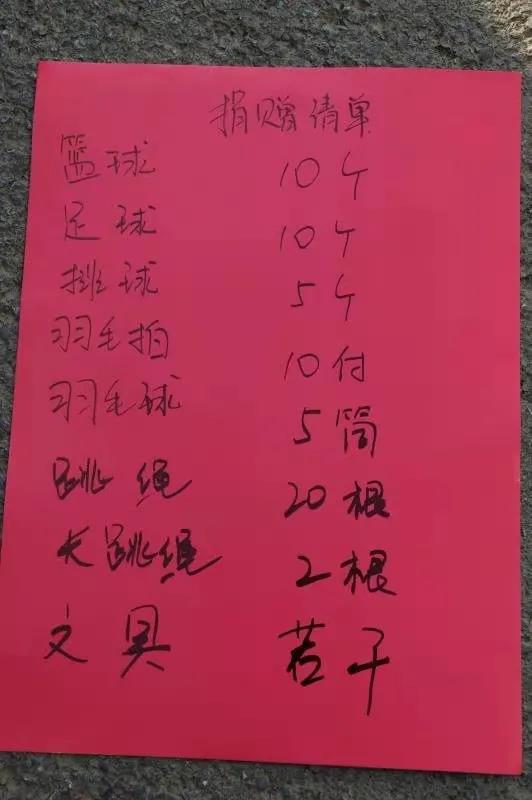 捐赠清单
篮球 10个
足球 10个
排球 5个
羽毛拍 10付
羽毛球 5筒
跳绳 20根
长跳绳 2根
文具 若干